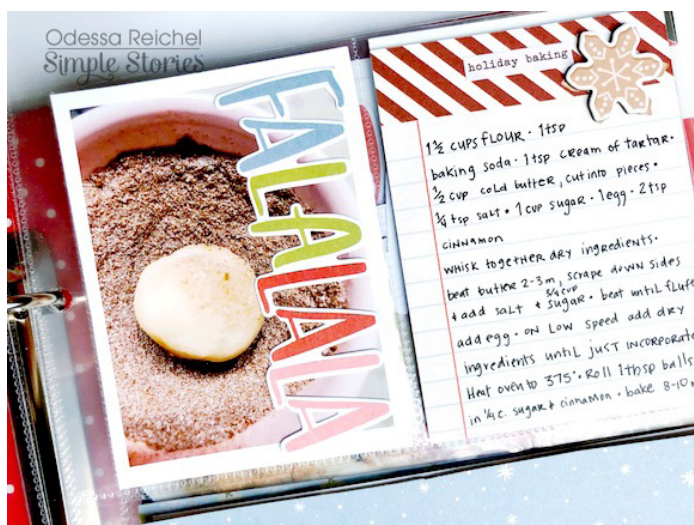 Odessa Reichel
Simple Stories
FALALALALA
holiday baking
1 ½ CUPS FLOUR • 1 tsp
baking soda • 1 tsp cream of tartar •
½ cup cold butter, cut into pieces •
¼ tsp salt • 1 cup sugar • 1 egg • 2 tsp
cinnamon
whisk together dry ingredients •
beat butter 2-3 m, scrape down sides
+ add salt + 3/4 cup sugar • beat until
add egg • on low speed add dry
ingredients until JUST INCORPORATE
Heat oven to 375° • Roll 1 tbsp balls
in ¼ c. sugar + cinnamon • bake 8-10